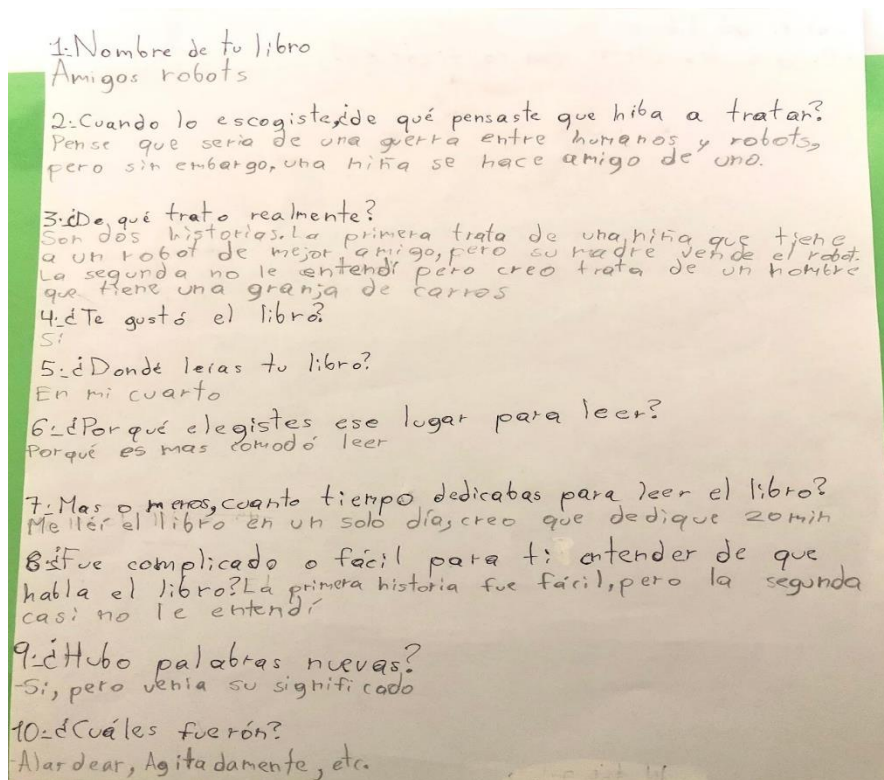 1:Nombre de tu libro
Amigos robots
2:Cuando lo escogiste,¿de qué pensaste que hiba a tratar?
Pense que seria de una guerra entre humanos y robots,
pero sin embargo, una niña se hace amigo de uno.
3:¿De qué trato realmente?
Son dos historias.La primera trata de una niña que tiene
a un robot de mejor amigo,pero su madre vende el robot.
La segunda no le entendí pero creo trata de un hombre
que tiene una granja de carros
4:¿Te gustó el libro?
Si
5:¿Donde leías tu libro?
En mi cuarto
6:¿Por qué elegistes ese lugar para leer?
Porqué es mas comodó leer
7:Mas o menos,cuanto tiempo dedicabas para leer el libro?
Me léi el libro en un solo día,creo que dedique 20min
8:¿Fue complicado o fácil para ti entender de que
habla el libro?La primera historia fue fácil,pero la segunda
casi no le entendí
9:¿Hubo palabras nuevas?
-Si, pero venia su significado
10:¿Cuáles fuerón?
-Alardear, Agitadamente, etc.